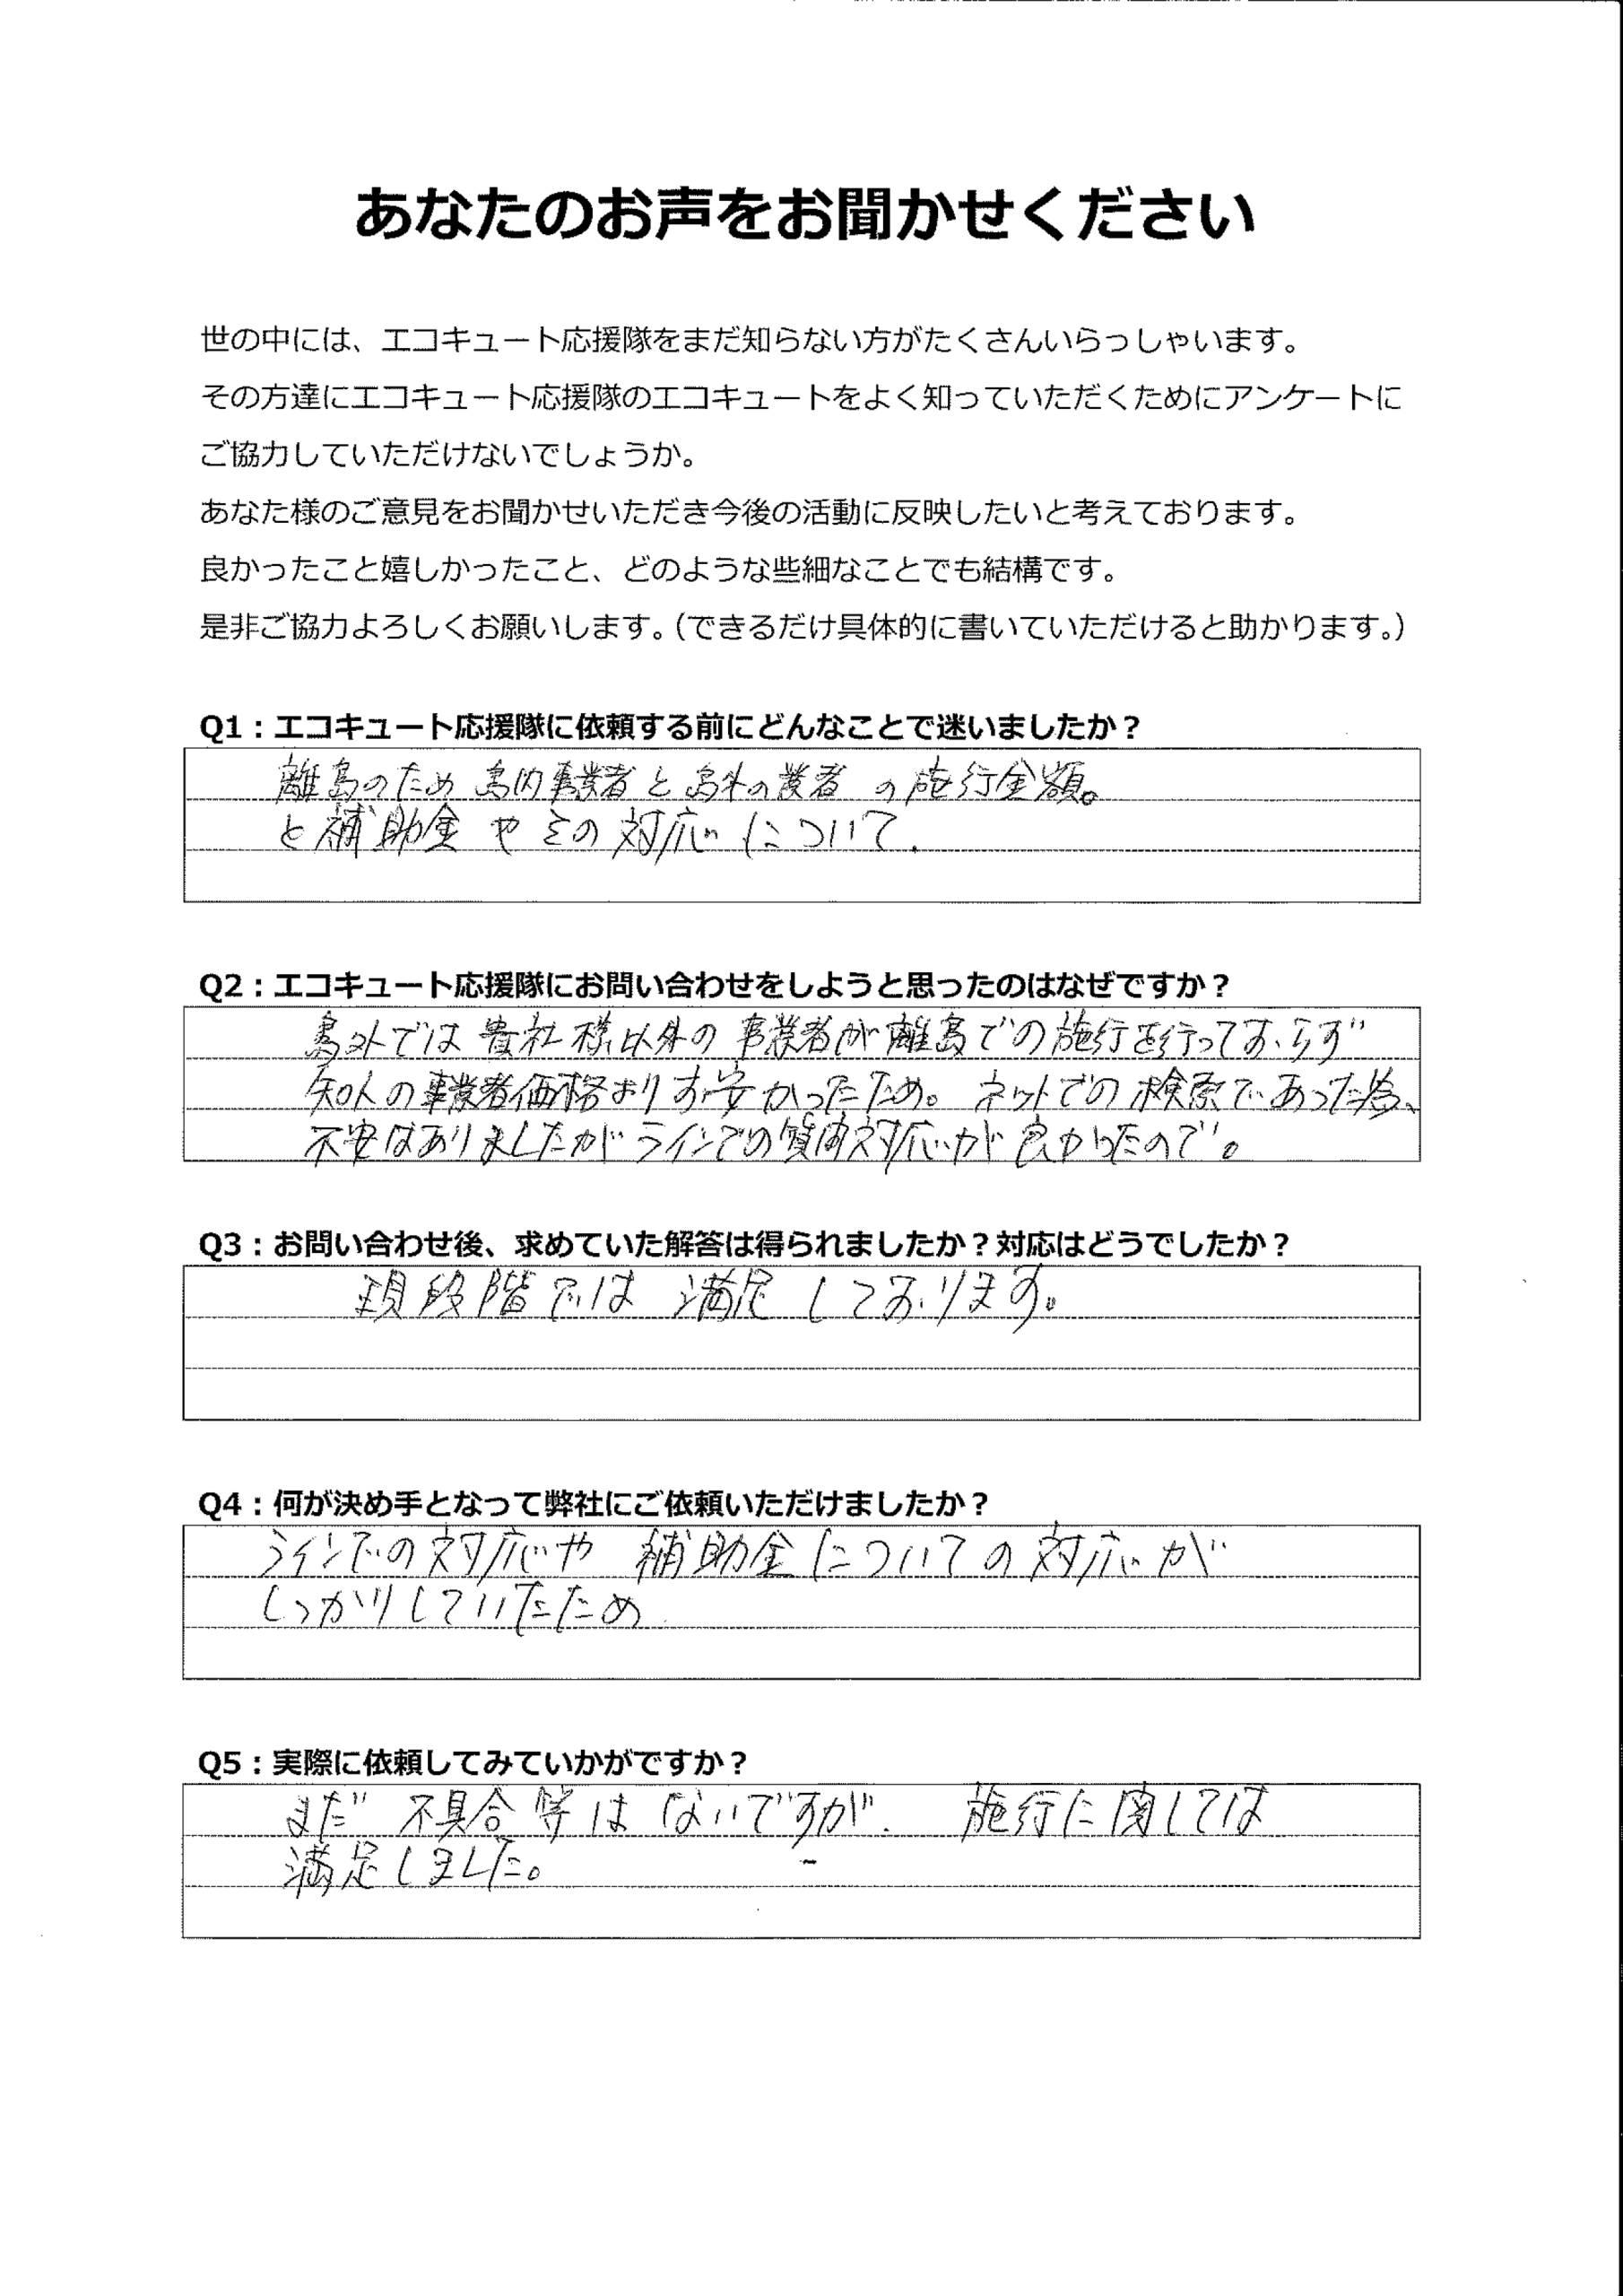 あなたのお声をお聞かせください
世の中には、エコキュート応援隊をまだ知らない方がたくさんいらっしゃいます。
その方達にエコキュート応援隊のエコキュートをよく知っていただくためにアンケートに
ご協力していただけないでしょうか。
あなた様のご意見をお聞かせいただき今後の活動に反映したいと考えております。
良かったこと嬉しかったこと、どのような些細なことでも結構です。
是非ご協力よろしくお願いします。(できるだけ具体的に書いていただけると助かります。)
Q1：エコキュート応援隊に依頼する前にどんなことで迷いましたか？
離島のため島内事業者と島外の業者の施行金額。
と補助金やその対応について.
Q2：エコキュート応援隊にお問い合わせをしようと思ったのはなぜですか？
島外では貴社様以外の事業者が離島での施行を行っておらず
知人の事業者価格よりお安かったため。ネットでの検索であった為、
不安はありましたがラインでの質問対応が良かったので。
Q3：お問い合わせ後、求めていた解答は得られましたか？対応はどうでしたか？
現段階では満足しております。
Q4：何が決め手となって弊社にご依頼いただけましたか？
ラインでの対応や補助金についての対応が
しっかりしていたため
Q5：実際に依頼してみていかがですか？
まだ不具合等はないですが、施行に関しては
満足しました。